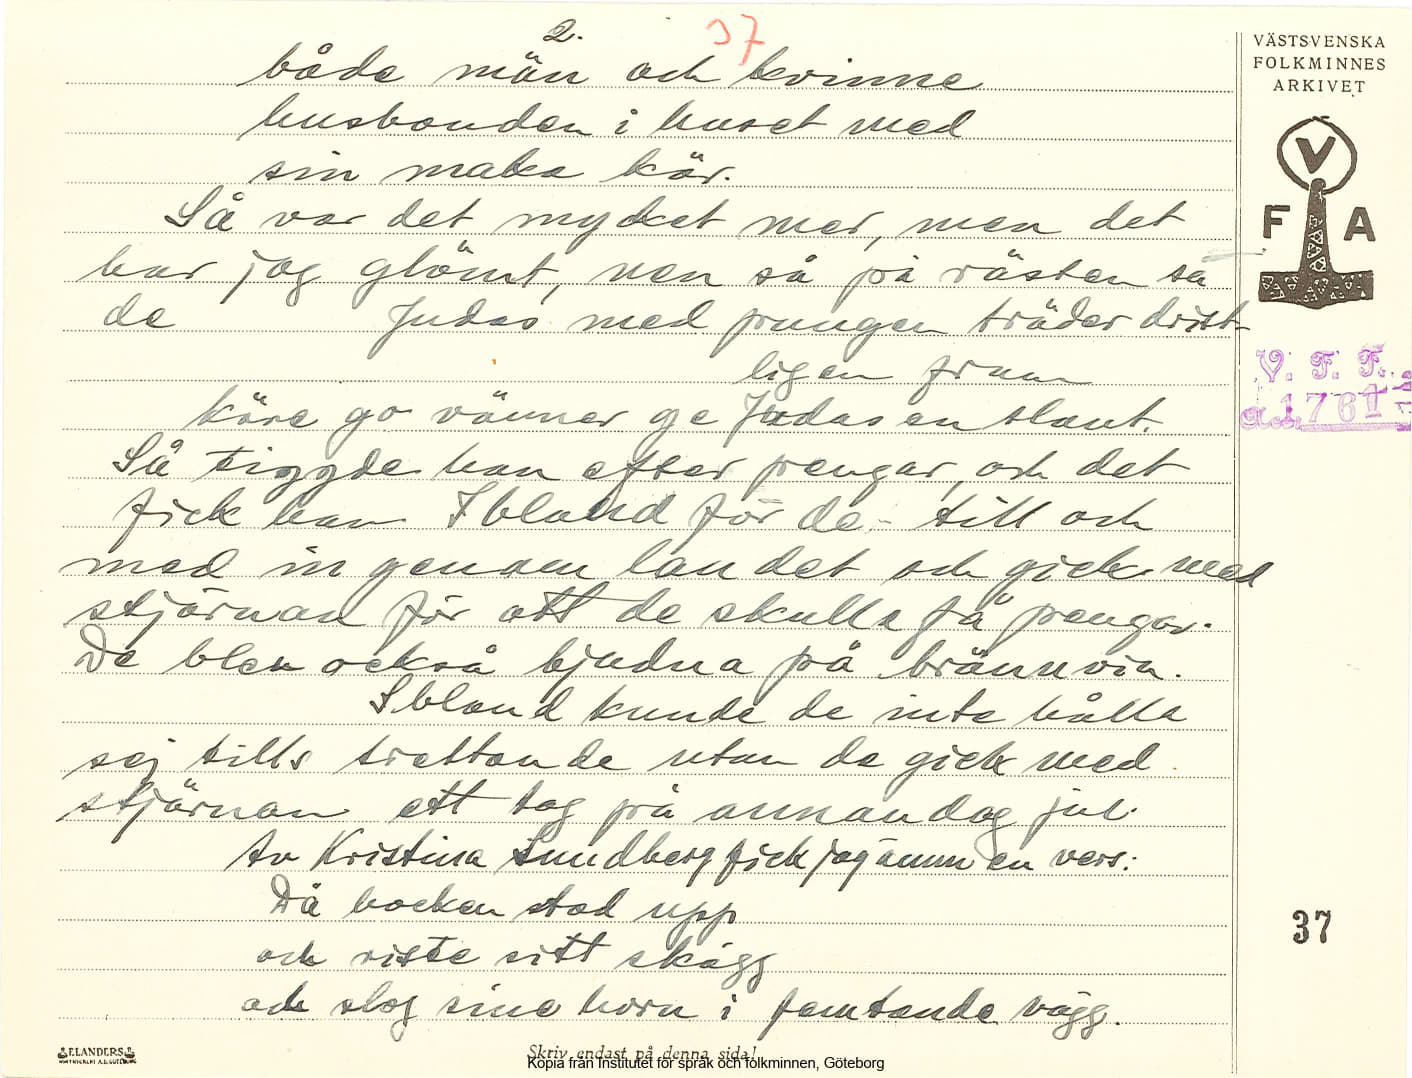 2.
37
både män och kvinne
husbonden i huset med
sin maka kär.
Så var det mycket mer, men det
har jag glömt, men så på rästen sä
de Judas med pungen träder drist-
ligen fram
käre go vänner ge Judas en slant.
Så tiggde han efter pengar, och det
fick han. Ibland för de till och
med in genom landet och gick med
stjärnan för att de skulle få pengar.
De blev också bjudna på brännvin.
Ibland kunde de inte hålla
sej tills trettonde utan de gick med
stjärnan ett tag på annandag jul.
Av Kristina Sundberg fick jag ännu en vers:
Då bocken stod upp
och riste sitt skägg
och slog sine horn i femtande vägg.
VÄSTSVENSKA
FOLKMINNES
ARKIVET
V
F A
V. F. F.
1761
37
F.LANDERS
Skriv endast på denna sida!
Kopia från Institutet för språk och folkminnen, Göteborg